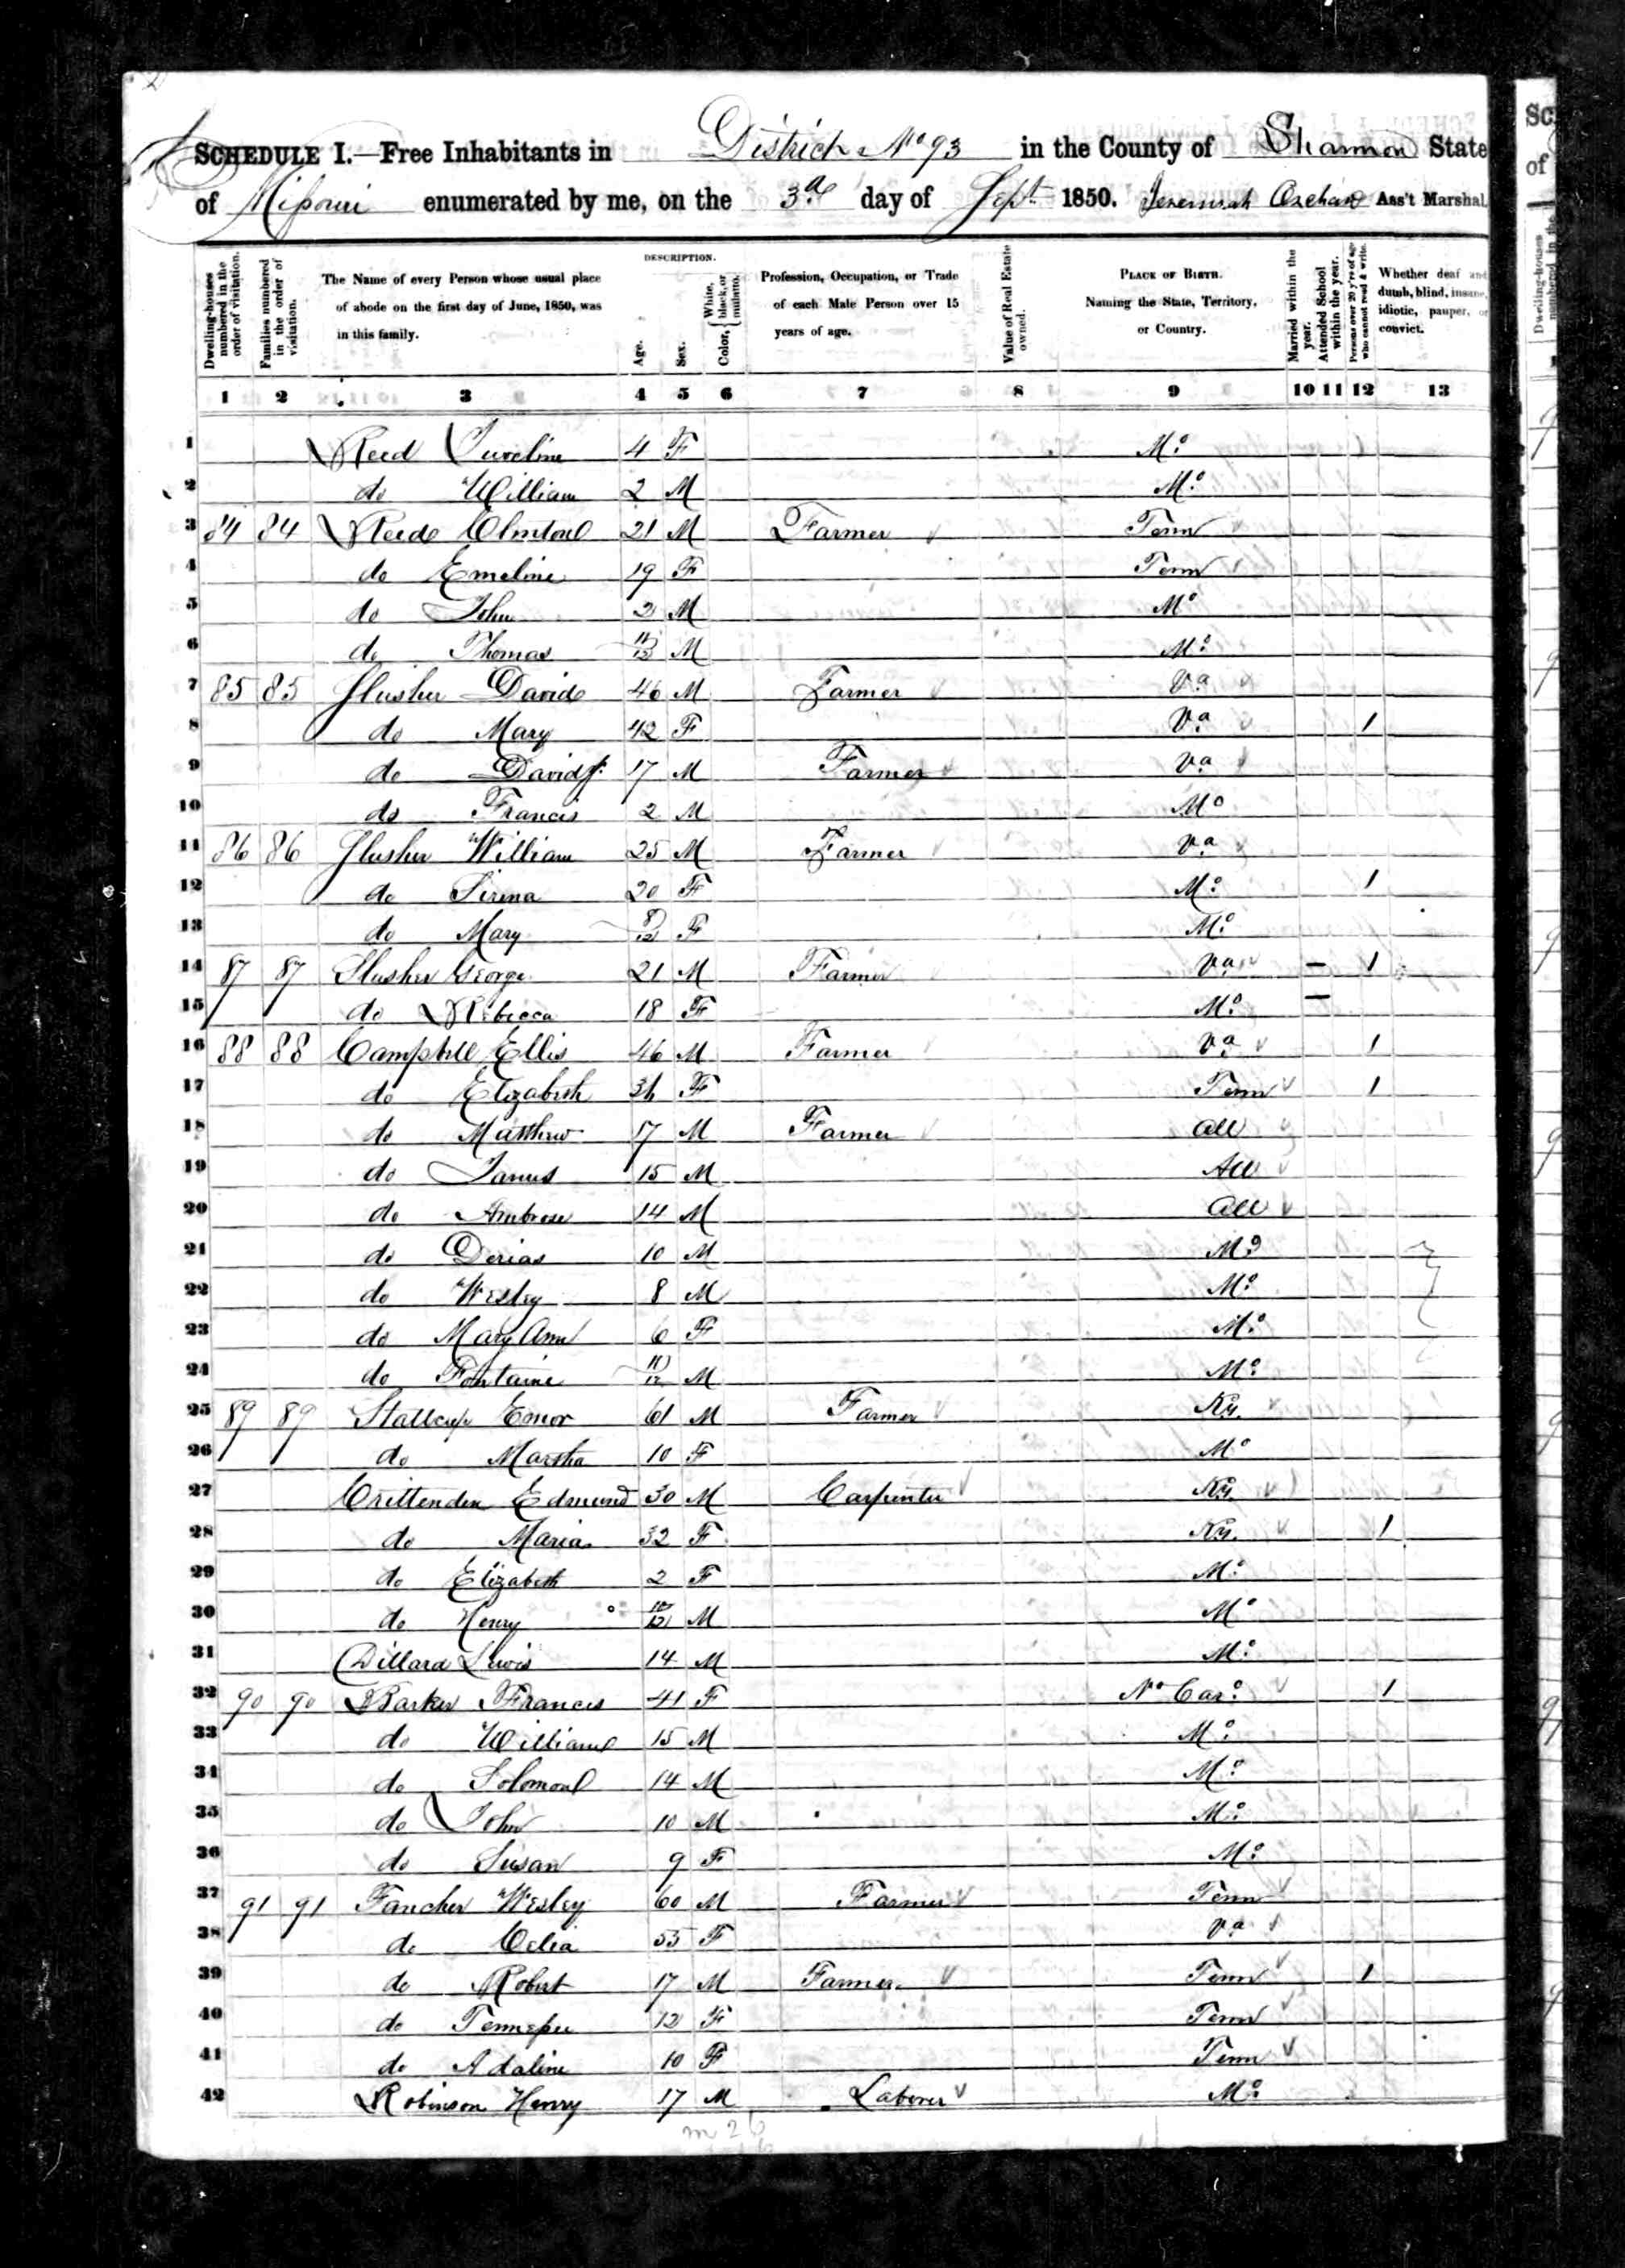 SCHEDULE I.—Free Inhabitants in District No 93 in the County of Shannon State
of Missouri enumerated by me, on the 3d day of Sept 1850. Jeremiah Ass't Marshal.
DESCRIPTION.
Dwelling-houses numbered in the order of visitation.
Families numbered in the order of visitation.
The Name of every Person whose usual place of abode on the first day of June, 1850, was in this family.
Age.
Sex.
Color, { White, black, or mulatto.
Profession, Occupation, or Trade of each Male Person over 15 years of age.
Value of Real Estate owned.
PLACE OF BIRTH. Naming the State, Territory, or Country.
Married within the year.
Attended School within the year.
Persons over 20 y'rs of age who cannot read & write.
Whether deaf and dumb, blind, insane, idiotic, pauper, or convict.
1 2 3 4 5 6 7 8 9 10 11 12 13
1 Reed 4 F Mo
2 do William 2 M Mo
3 84 84 Reed 21 M Farmer Tenn
4 do Emeline 19 F Tenn
5 do John 2 M Mo
6 do Thomas 11/12 M Mo
7 85 85 Slusher David 46 M Farmer Va
8 do Mary 42 F Va 1
9 do David Jr. 17 M Farmer Va
10 do Francis 2 M Mo
11 86 86 Slusher William 25 M Farmer Va
12 do Sirena 20 F Mo 1
13 do Mary 8/12 F Mo
14 87 87 Slusher George 21 M Farmer Va — 1
15 do Rebecca 18 F Mo —
16 88 88 Campbell Ellis 46 M Farmer Va 1
17 do Elizabeth 36 F Tenn 1
18 do Matthew 17 M Farmer Ill
19 do James 15 M Ill
20 do Ambrose 14 M Ill
21 do Derias 10 M Mo
22 do Wesley 8 M Mo
23 do Mary Ann 6 F Mo
24 do Fontaine 10/12 M Mo
25 89 89 Stallcup Emor 61 M Farmer Ky.
26 do Martha 10 F Mo
27 Crittenden Edmund 30 M Carpenter Ky.
28 do Maria 32 F Ky. 1
29 do Elizabeth 2 F Mo
30 do Henry 10/12 M Mo
31 Dillard Lewis 14 M Mo
32 90 90 Barker Frances 41 F No Car. 1
33 do William 15 M Mo
34 do Solomon 14 M Mo
35 do John 10 M Mo
36 do Susan 9 F Mo
37 91 91 Fancher Wesley 60 M Farmer Tenn
38 do Celia 55 F Va
39 do Robert 17 M Farmer Tenn 1
40 do Tennessee 12 F Tenn
41 do Adaline 10 F Tenn
42 Robinson Henry 17 M Laborer Mo